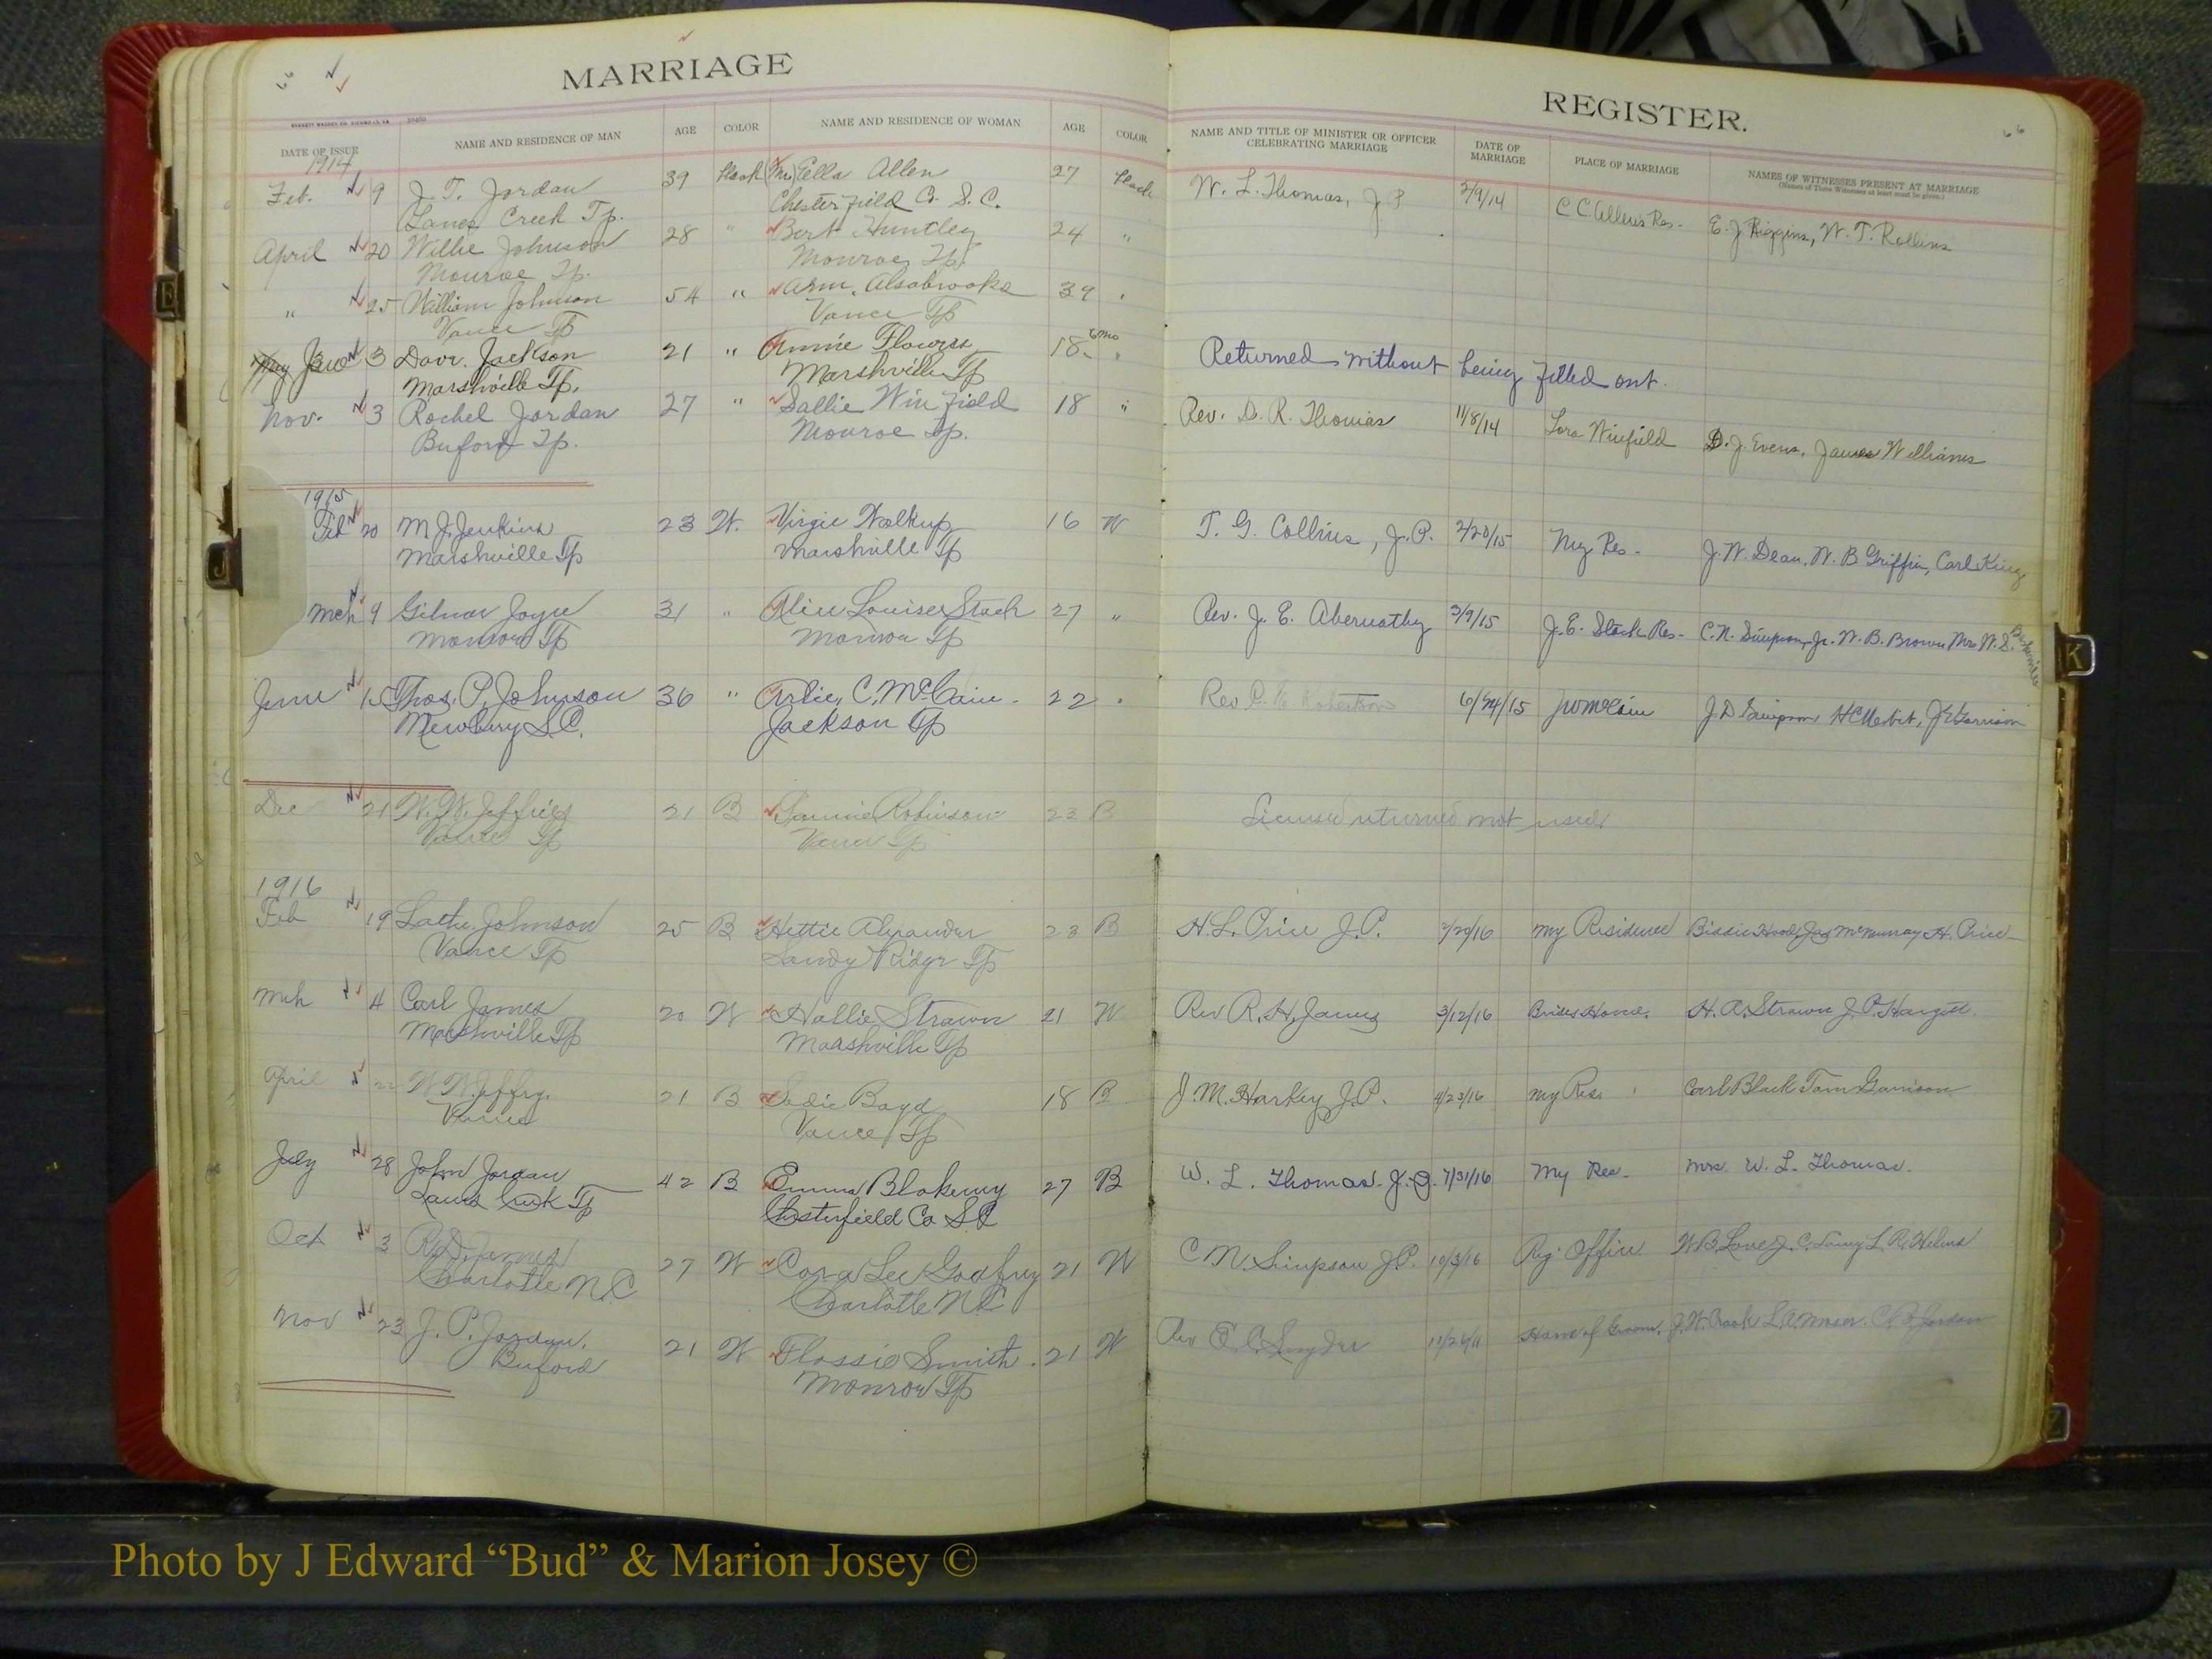 MARRIAGE
REGISTER.
DATE OF ISSUE NAME AND RESIDENCE OF MAN AGE COLOR NAME AND RESIDENCE OF WOMAN AGE COLOR NAME AND TITLE OF MINISTER OR OFFICER CELEBRATING MARRIAGE DATE OF MARRIAGE PLACE OF MARRIAGE NAMES OF WITNESSES PRESENT AT MARRIAGE
(Names of Three Witnesses at least must be given.)
66
1914
Feb. 9 J. T. Jordan 39 black Ella Allen 27 black W. L. Thomas, J P 2/9/14 Res. E. J. Higgins, W. T. Rollins
Lanes Creek Tp. Chesterfield Co. S. C.
April 20 Willie Johnson 28 " Bert Huntley 24 "
Monroe Tp. Monroe Tp.
" 25 William Johnson 54 " Alsobrooks 39 "
Vance Tp Vance Tp
3 Jackson 21 " Annie Flowers 18 6mo " Returned without being filled out.
Marshville Tp. Marshville Tp
Nov. 3 Rochel Jordan 27 " Sallie Winfield 18 " Rev. D. R. Thomas 11/8/14 Winfield D. J. Evens, James Williams
Buford Tp. Monroe Tp.
1915
Feb 20 M J. Jenkins 23 W. Virgie Walkup 16 W T. G. Collins, J. P. 2/20/15 My Res- J. W. Dean, W. B Griffin, Carl King
Marshville Tp Marshville Tp
Mch 9 Gilmer Joyner 31 " Alice Louise Stack 27 " Rev. J. E. Abernathy 3/9/15 J. E. Stack Res- C. N. Simpson, Jr. W. B. Brown, Mrs W. S.
Monroe Tp Monroe Tp
June 15 Thos. P. Johnson 36 " Arlie, C. McCain 22 " Rev Robertson 6/24/15 J W McCain J. D Simpson
Newbury S. C. Jackson Tp
Dec 21 W. W. Jeffries 21 B Robinson 23 B License returned not used
Vance Tp Vance Tp
1916
Feb 19 Johnson 25 B Hettie Alexander 23 B H. L. Price J. P. 2/20/16 My Residence McMurray H. Price
Vance Tp Sandy Ridge Tp
Mch 4 Carl James 20 W Hallie Strawn 21 W Rev R. H. James 3/12/16 Brides Home. H. A. Strawn J. P. Hargett.
Marshville Tp Marshville Tp
April 22 W W. Jeffry. 21 B Sadie Boyd 18 B J. M. Harkey J. P. 4/23/16 My Res. Carl Black Tom Garrison
Vance Vance Tp
July 28 John Jordan 42 B Emma Blakeney 27 B W. L. Thomas. J. P. 7/31/16 My Res- Mrs. W. L. Thomas.
Lanes Creek Tp Chesterfield Co S C
Oct 3 R. D. James 27 W Cora Lee Godfrey 21 W C N. Simpson J. P. 10/3/16 Reg. Office W B Love J. C. L. R. Helms
Charlotte N. C Charlotte N C
Nov 23 J. P. Jordan. 21 W Flossie Smith. 21 W Rev E. C. Snyder Home of Groom. J. W. Crook Jordan
Buford Monroe Tp
E
J
K
Z
Photo by J Edward “Bud” & Marion Josey ©